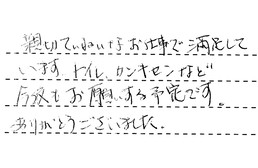 親切ていねいなお仕事で満足して
います。トイレ、カンキセンなど
今後もお願いする予定です。
ありがとうございました。